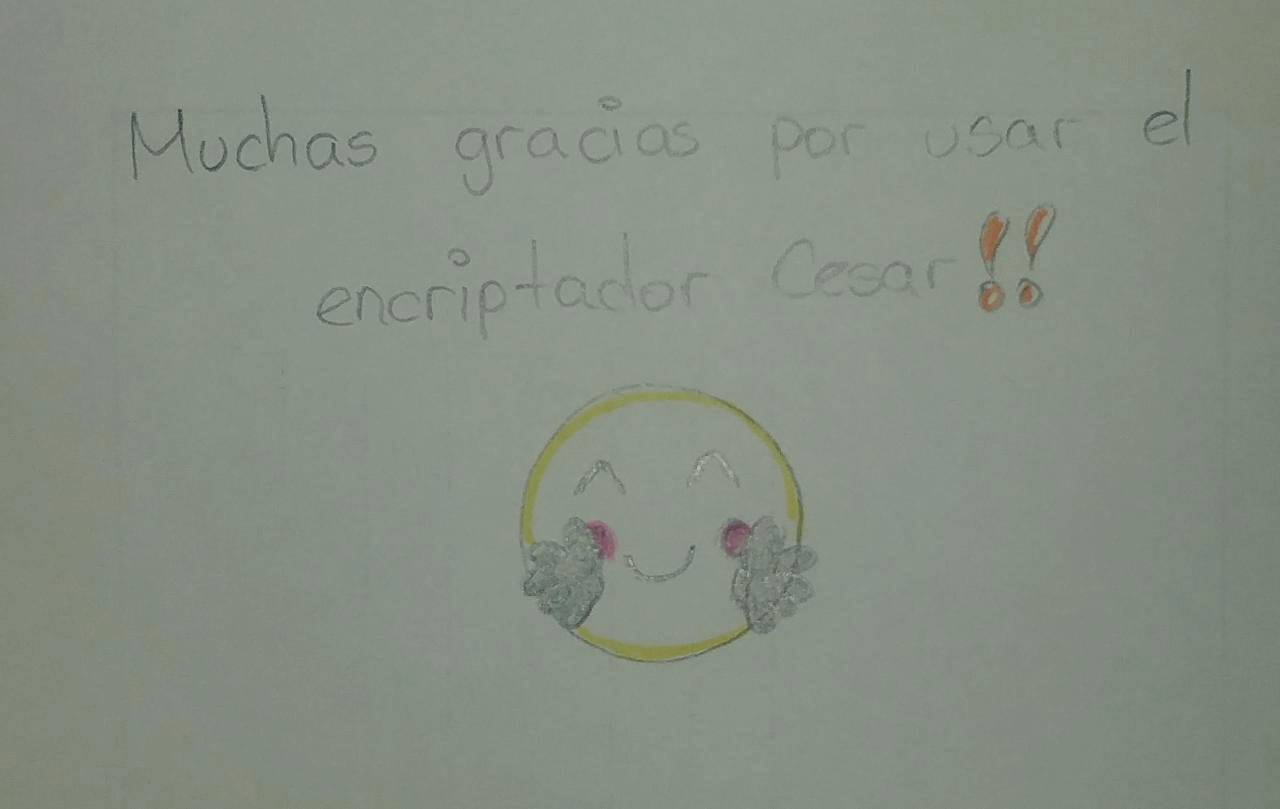 Muchas gracias por usar el
encriptador Cesar!!